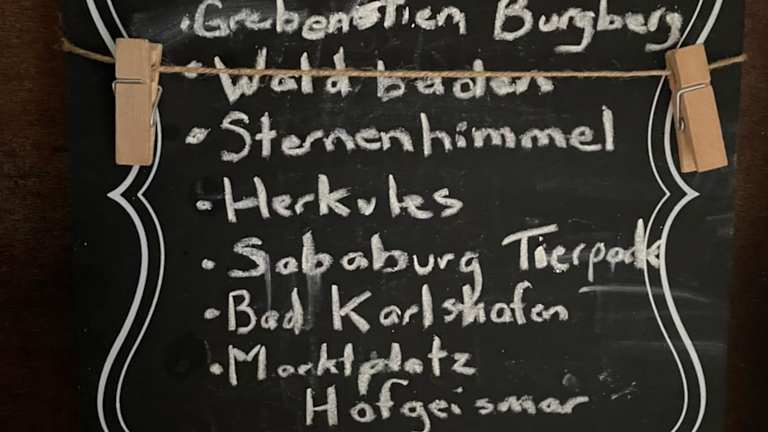 • Grebenstien Burgberg
• Wald baden
• Sternenhimmel
• Herkules
• Sababurg Tierpark
• Bad Karlshafen
• Marktplatz
Hofgeismar